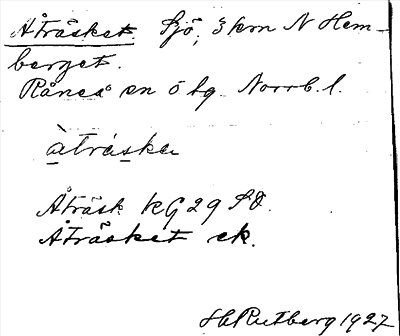 Åträsket. Sjö, 3 km N Hem-
berget.
Råneå sn ö tg. Norrb. l.
àtráskə
Åträsk KG 29 SO.
Åträsket ek.
H Rutberg 1927